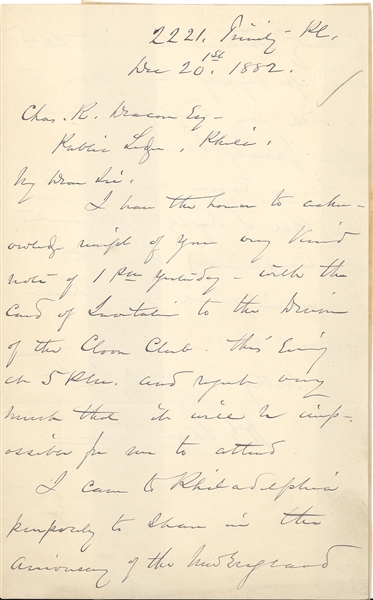 2221. Trinity Pl.
Dec 20.1st 1882.
Chas. R. Deacon Esq-
Public Ledger, Phila.
My Dear Sir.
I have the honor to ackn-
owledge receipt of your very kind
note of 1 P.M. yesterday - with the
Card of Invitation to the Dinner
of the Clover Club. this Evning
at 5 P.M. and regret very
much that it will be imp-
ossible for me to attend
I came to Philadelphia
purposely to share in the
anniversary of the New England